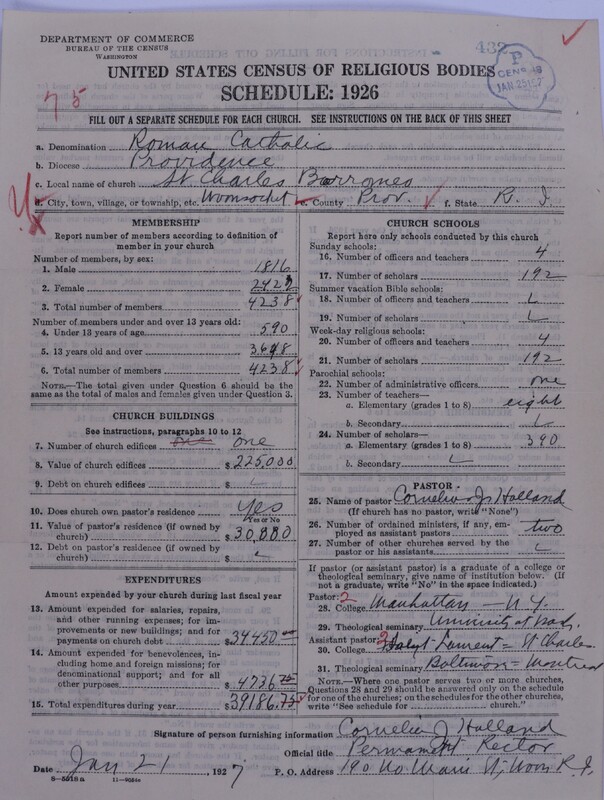 DEPARTMENT OF COMMERCE
BUREAU OF THE CENSUS
WASHINGTON
432
P
CENSUS
JAN 25 1927
UNITED STATES CENSUS OF RELIGIOUS BODIES
SCHEDULE: 1926
75
FILL OUT A SEPARATE SCHEDULE FOR EACH CHURCH. SEE INSTRUCTIONS ON THE BACK OF THIS SHEET
a. Denomination Roman Catholic
b. Diocese Providence
c. Local name of church St Charles Borromeo
d. City, town, village, or township, etc. Woonsocket e. County Prov. f. State R. I.
MEMBERSHIP
Report number of members according to definition of member in your church
Number of members, by sex:
1. Male 1816
2. Female 2422
3. Total number of members 4238
Number of members under and over 13 years old:
4. Under 13 years of age 590
5. 13 years old and over 3648
6. Total number of members 4238
NOTE.—The total given under Question 6 should be
same as the total of males and females given under Question 3.
CHURCH BUILDINGS
See instructions, paragraphs 10 to 12
7. Number of church edifices one
8. Value of church edifices $ 225,000
9. Debt on church edifices $
10. Does church own pastor's residence Yes
Yes or No
11. Value of pastor's residence (if owned by
church) $ 30,000
12. Debt on pastor's residence (if owned by
church) $
EXPENDITURES
Amount expended by your church during last fiscal year
13. Amount expended for salaries, repairs,
and other running expenses; for im-
provements or new buildings; and for
payments on church debt $ 34450
14. Amount expended for benevolences, in-
cluding home and foreign missions; for
denominational support; and for all
other purposes $ 4736.75
15. Total expenditures during year $ 39186.75
CHURCH SCHOOLS
Report here only schools conducted by this church
Sunday schools:
16. Number of officers and teachers 4
17. Number of scholars 192
Summer vacation Bible schools:
18. Number of officers and teachers
19. Number of scholars
Week-day religious schools:
20. Number of officers and teachers 4
21. Number of scholars 192
Parochial schools:
22. Number of administrative officers one
23. Number of teachers—
a. Elementary (grades 1 to 8) eight
b. Secondary
24. Number of scholars—
a. Elementary (grades 1 to 8) 390
b. Secondary
PASTOR
25. Name of pastor Cornelius J Holland
(If church has no pastor, write "None")
26. Number of ordained ministers, if any, em-
ployed as assistant pastors two
27. Number of other churches served by the
pastor or his assistants
If pastor (or assistant pastor) is a graduate of a college or
theological seminary, give name of institution below. (If
not a graduate, write "No" in the space indicated.)
Pastor: 2
28. College Manhattan — N. Y.
29. Theological seminary University at
Assistant pastor: 2
30. College Laurent = St Charles
31. Theological seminary Baltimore = Montreal
NOTE.—Where one pastor serves two or more churches,
Questions 28 and 29 should be answered only on the schedule
for one of the churches; on the schedules for the other churches,
write "See schedule for church."
Signature of person furnishing information Cornelius J Holland
Official title Permanent Rector
Date Jan 21, 1927 P. O. Address 190 No Main St, Woon R. I.
8-5518a